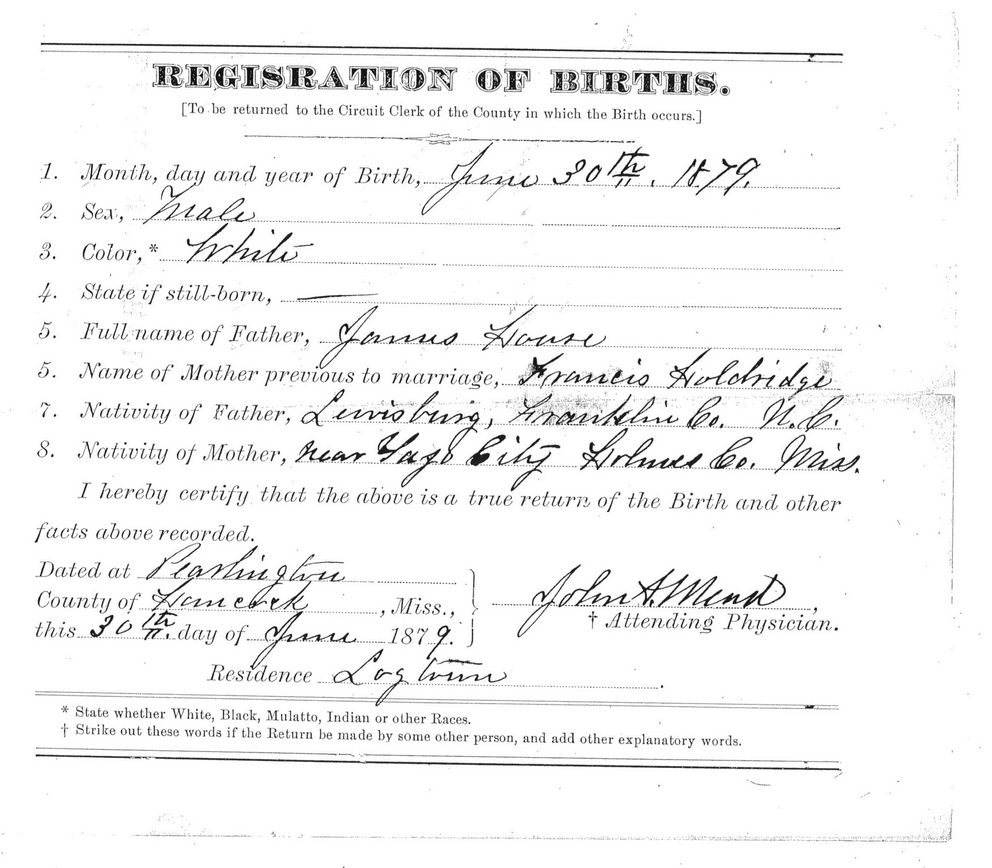 REGISRATION OF BIRTHS.
[To be returned to the Circuit Clerk of the County in which the Birth occurs.]
1. Month, day and year of Birth, June 30th. 1879.
2. Sex, Male
3. Color,* White
4. State if still-born, —
5. Full name of Father, James House
5. Name of Mother previous to marriage, Francis Holdridge
7. Nativity of Father, Lewisburg, Franklin Co. N.C.
8. Nativity of Mother, near Yazo City Holmes Co. Miss.
I hereby certify that the above is a true return of the Birth and other
facts above recorded.
Dated at Pearlington
County of Hancock, Miss.,
this 30th. day of June 1879.
John A. Mead,
† Attending Physician.
Residence Logtown.
* State whether White, Black, Mulatto, Indian or other Races.
† Strike out these words if the Return be made by some other person, and add other explanatory words.